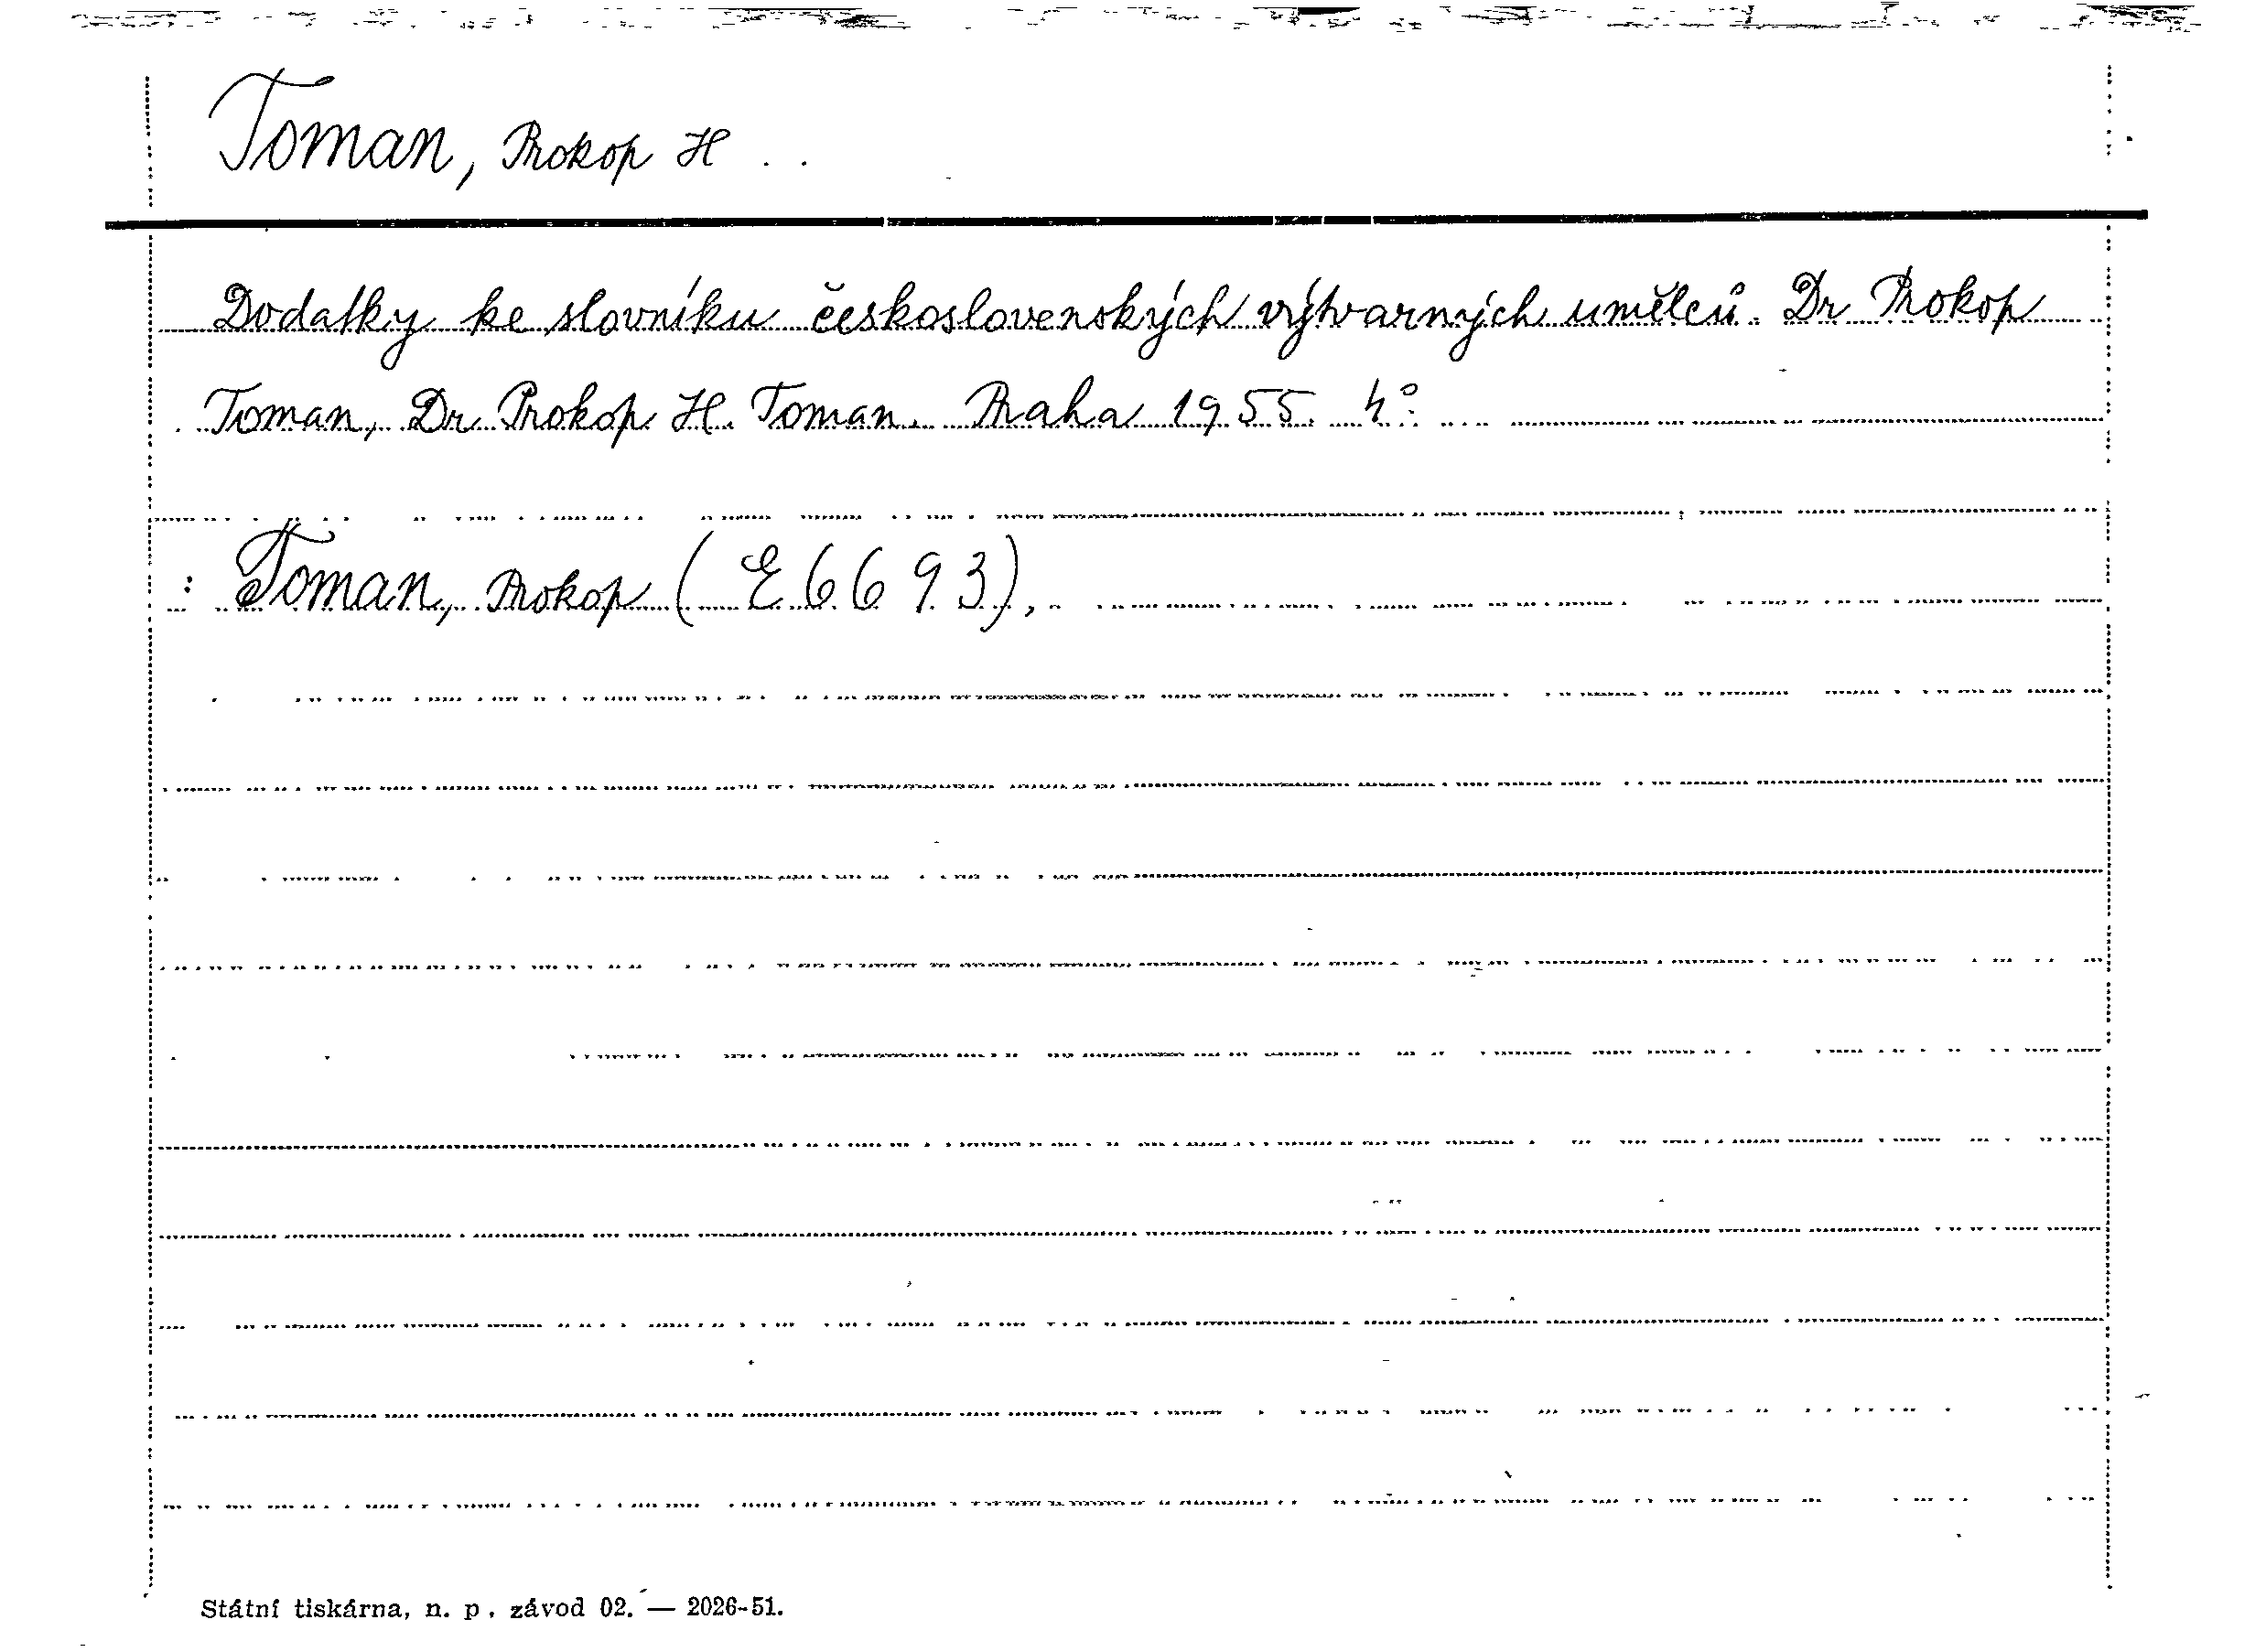 Toman, Prokop H . .
Dodatky ke slovníku československých výtvarných umělců. Dr Prokop
Toman, Dr Prokop H. Toman. Praha 1955. 4°.
: Toman, Prokop (E 6693),
Státní tiskárna, n. p. závod 02. — 2026-51.